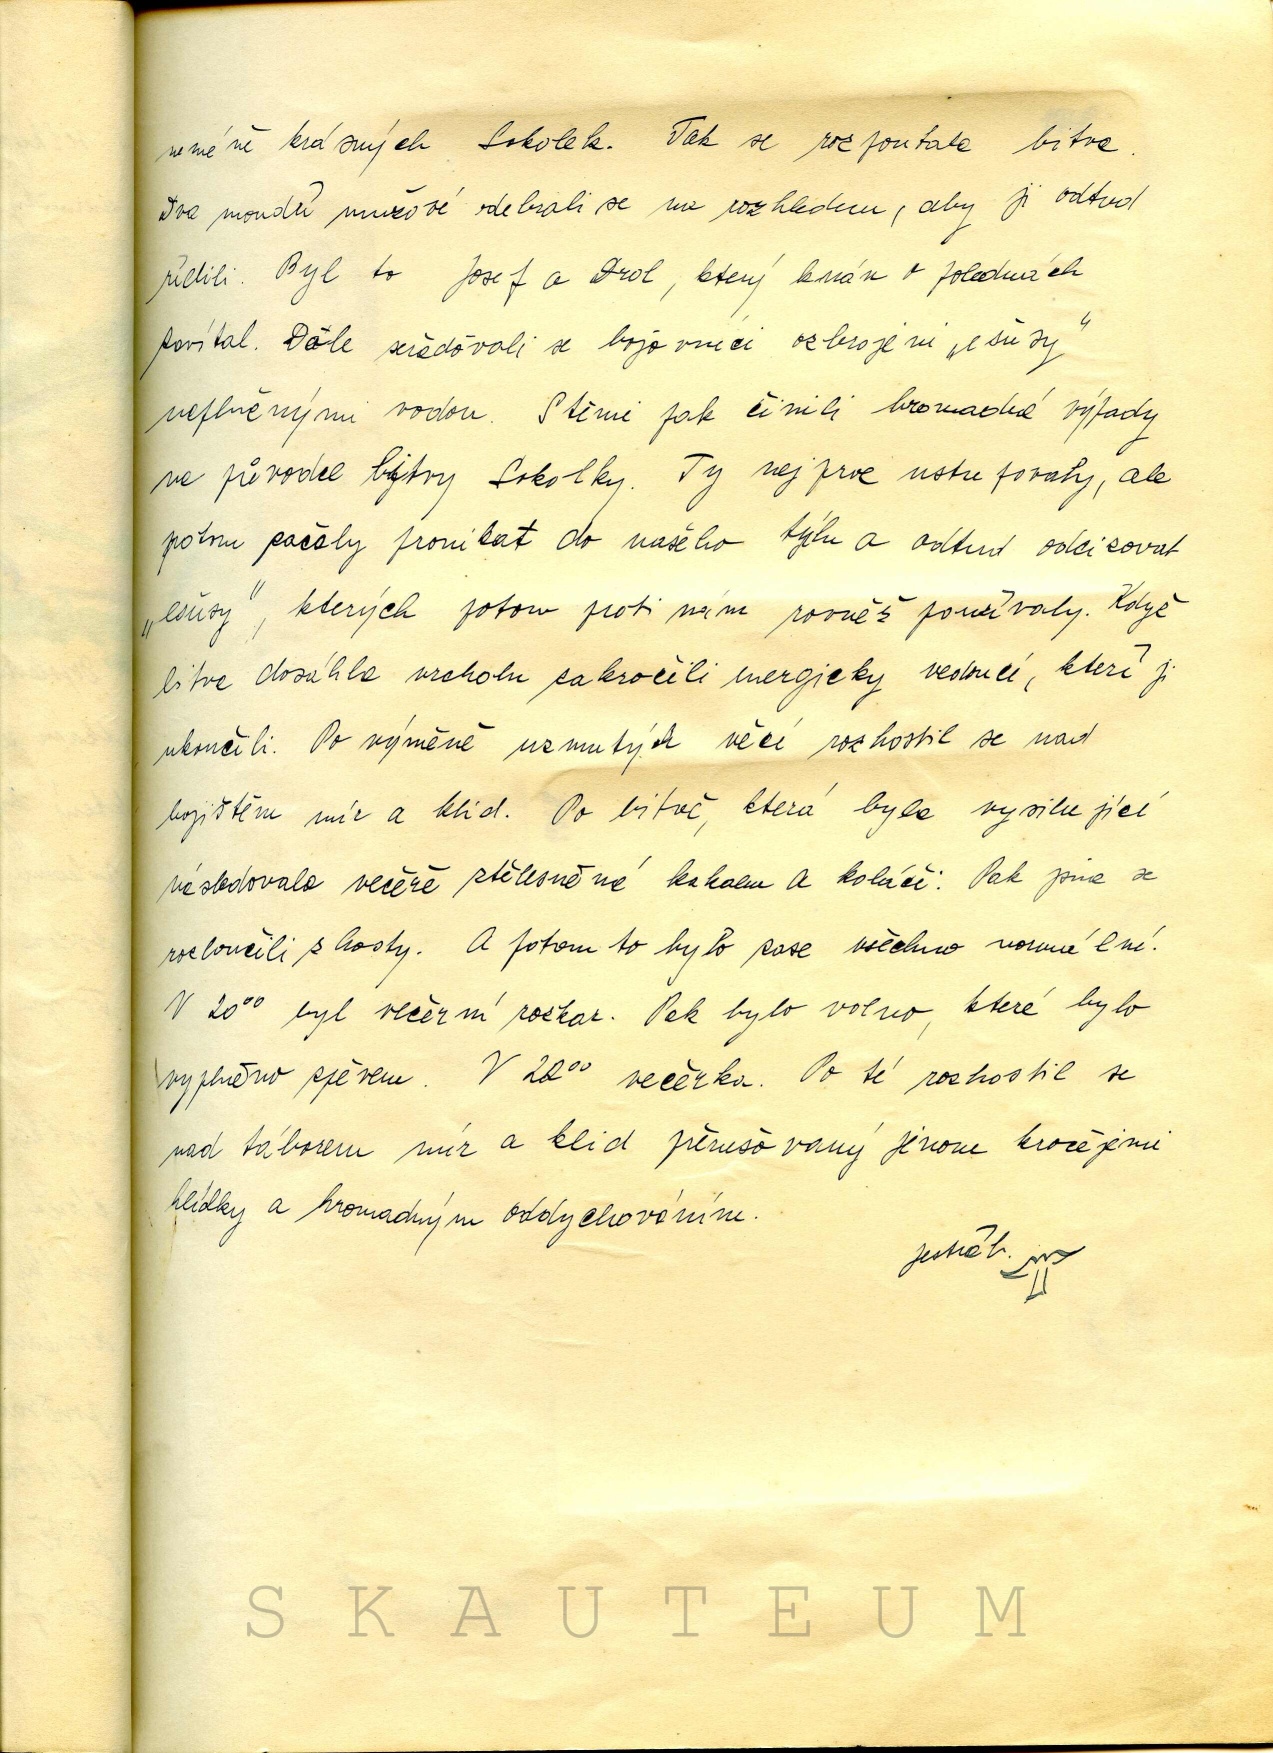 neméně krásných Sokolek. Tak se rozpoutala bitva.
Dva moudří mužové odebrali se na rozhlednu, aby ji odtud
řídili. Byl to Josef a Drol, který k nám o poledních
zavítal. Dále seřaďovali se bojovníci ozbrojeni „ešusy“
neplněnými vodou. S těmi pak činili hromadné výpady
na původce bitvy Sokolky. Ty nejprve ustupovaly, ale
potom začaly pronikat do našeho týlu a odtud odcizovat
„ešusy“, kterých potom proti nám rovněž používaly. Když
bitva dosáhla vrcholu zakročili energicky vedoucí, kteří ji
ukončili. Po výměně uzmutých věcí rozhostil se nad
bojištěm mír a klid. Po bitvě, která byla vysilující
následovala večeře ztělesněná kakaem a koláči. Pak jsme se
rozloučili s hosty. A potom to bylo zase všechno normální.
V 20⁰⁰ byl večerní rozkaz. Pak bylo volno, které bylo
vyplněno zpěvem. V 22⁰⁰ večerka. Po té rozhostil se
nad táborem mír a klid přerušovaný jenom kročejemi
hlídky a hromadným oddychováním.
jestřáb.
SKAUTEUM